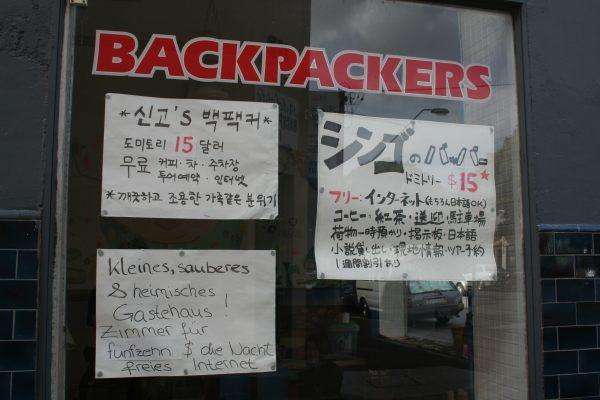 BACKPACKERS
*신고's 백팩커*
도미토리 15 달러
무료 커피·차·주차장
투어예약·인터넷
*깨끗하고 조용한 가족같은 분위기
シンゴのバッパー
ドミトリー $15*
フリー:インターネット(もちろん日本語OK)
コーヒー·紅茶·送迎·駐車場
荷物一時預かり·掲示板·日本語
小説貸し出し·現地情報·ツアー予約
1週間割引あり
kleines, sauberes
& heimisches
Gästehaus!
Zimmer für
fünfzehn $ die Nacht
freies Internet